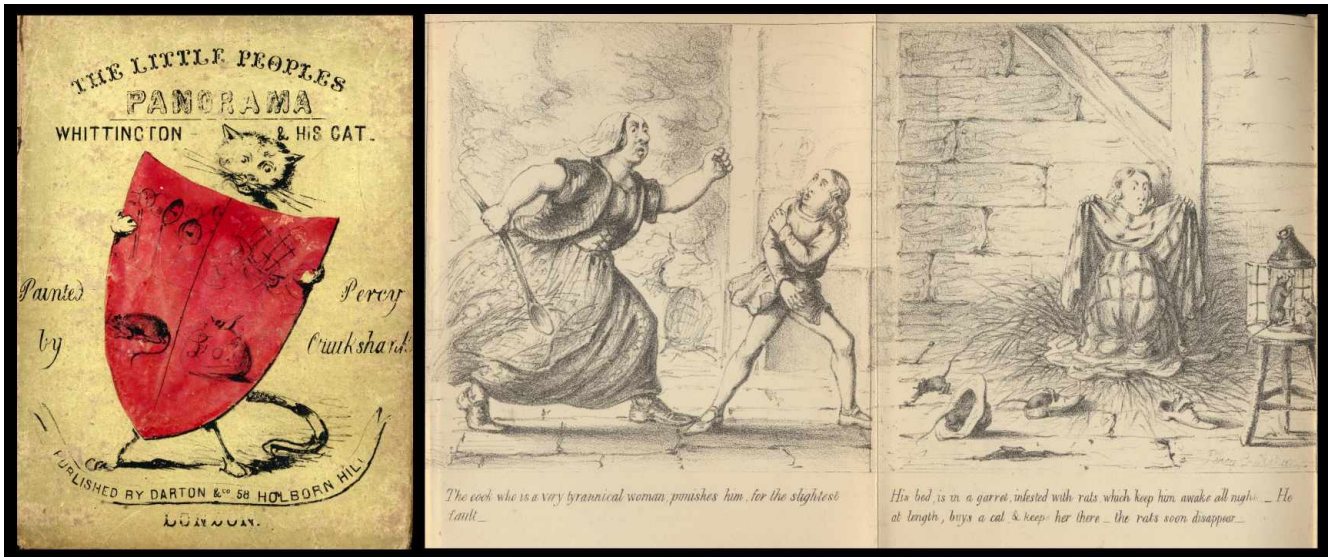 THE LITTLE PEOPLES
PANORAMA
WHITTINGTON & HIS CAT.
Painted
by
Percy
Cruikshank
PUBLISHED BY DARTON & Co. 58 HOLBORN HILL
LONDON.
The cook who is a very tyrannical woman, punishes him, for the slightest
fault_
His bed, is in a garret, infested with rats which keep him awake all night _ He
at length, buys a cat & keeps her there _ the rats soon disappear_